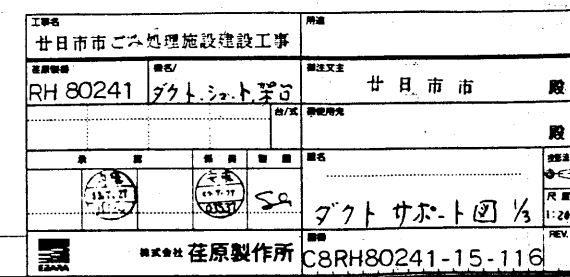 工事名
廿日市市ごみ処理施設建設工事
用途
荏原製番
RH 80241
機名/
ダクト、シュート、架台
御注文主
廿日市市 殿
台/式
御使用先
殿
承認
係員
製図
図名
ダクト サポート図 1/3
尺度
1:20
EBARA
株式会社 荏原製作所
図番
C8RH80241-15-116
REV.